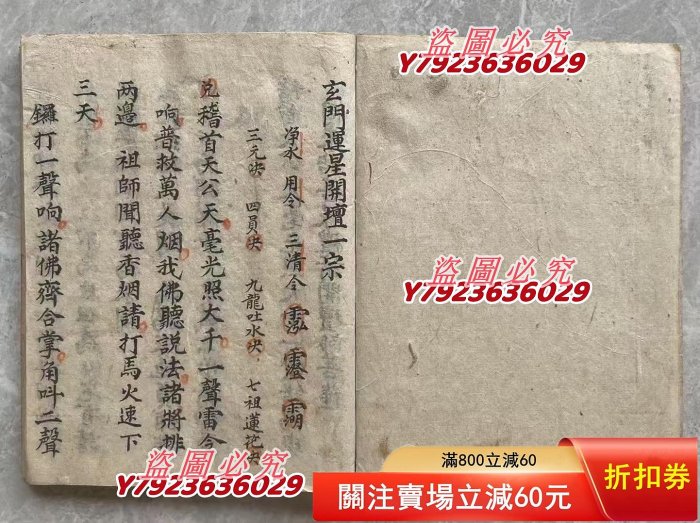 玄門運星開壇一宗
净水 用令 三清令
三元决 四員决 九龍吐水决 七祖蓮花决
兑稽首天公天毫光照大千一聲雷令
响普技萬人烟我佛聽説法諸將排
两邊 祖師聞聽香烟請打馬火速下
三天
鑼打一聲响諸佛齊合掌角呌二聲
盜圖必究
Y7923636029
盜圖必究
Y7923636029
盜圖必究
Y7923636029
滿800立減60
關注賣場立減60元
折扣券